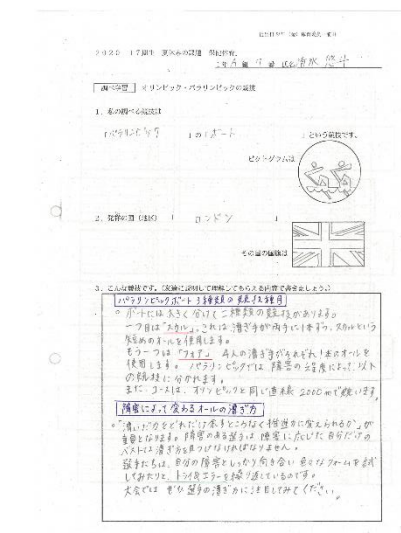 2020 17期生 夏休みの課題 保健体育
調べ学習 オリンピック・パラリンピックの競技
1、私の調べる競技は
パラリンピック の ボート という競技です。
ピクトグラムは
2、発祥の国(地区) ロンドン
その国の国旗は
3、こんな競技です。(友達に説明して理解してもらえる内容で書きましょう。)
パラリンピックボート 3種類の競技種目
○ ボートには大きく分けて二種類の競技があります。
一つ目は"スカル"。これは漕ぎ手が両手に1本ずつ、スカルという
短めのオールを使用します。
もう一つは"フォア" 4人の漕ぎ手がそれぞれ1本のオールを
使用します。パラリンピックでは、障害の程度によって、以下
の競技に分かれます。
また、コースは、オリンピックと同じ直線2000mで競います。
障害によって変わるオールの漕ぎ方
○ "漕いだ力をどれだけ余すところなく推進力に変えられるか"が
重要となります。障害のある選手は障害に応じた自分だけの
ベストな漕ぎ方を見つけなければなりません。
選手たちは、自分の障害としっかり向き合い色々なフォームを試
してみたりと、トライ&エラーを繰り返しているのです。
大会では ぜひ選手の漕ぎ方に注目してみてください。